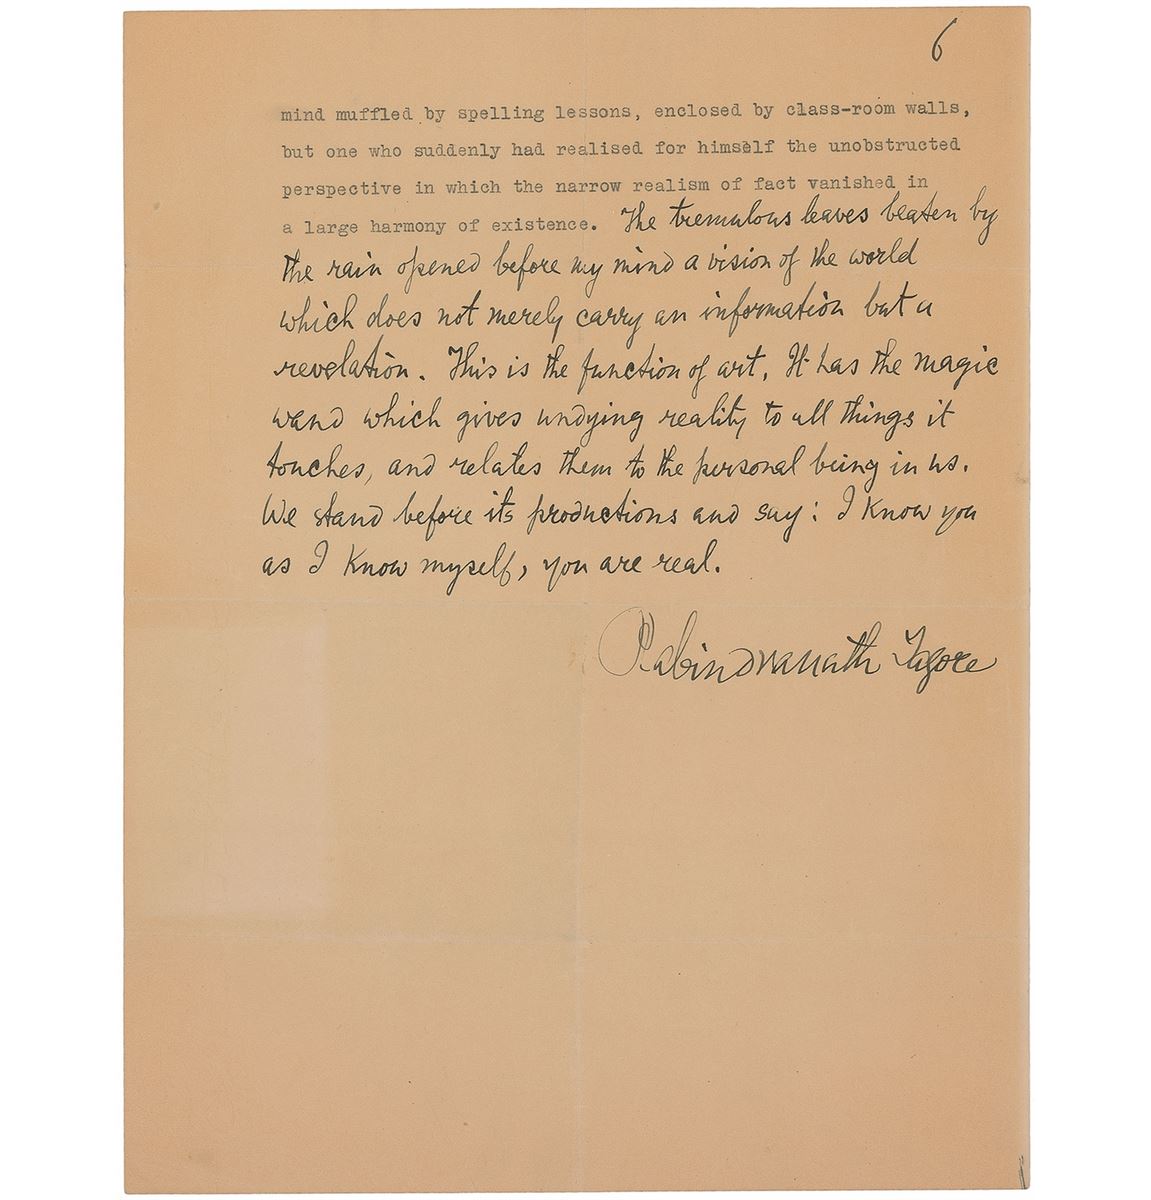 6
mind muffled by spelling lessons, enclosed by class-room walls,
but one who suddenly had realised for himself the unobstructed
perspective in which the narrow realism of fact vanished in
a large harmony of existence. The tremulous leaves beaten by
the rain opened before my mind a vision of the world
which does not merely carry an information but a
revelation. This is the function of art. It has the magic
wand which gives undying reality to all things it
touches, and relates them to the personal being in us.
We stand before its productions and say: I know you
as I know myself, you are real.
Rabindranath Tagore